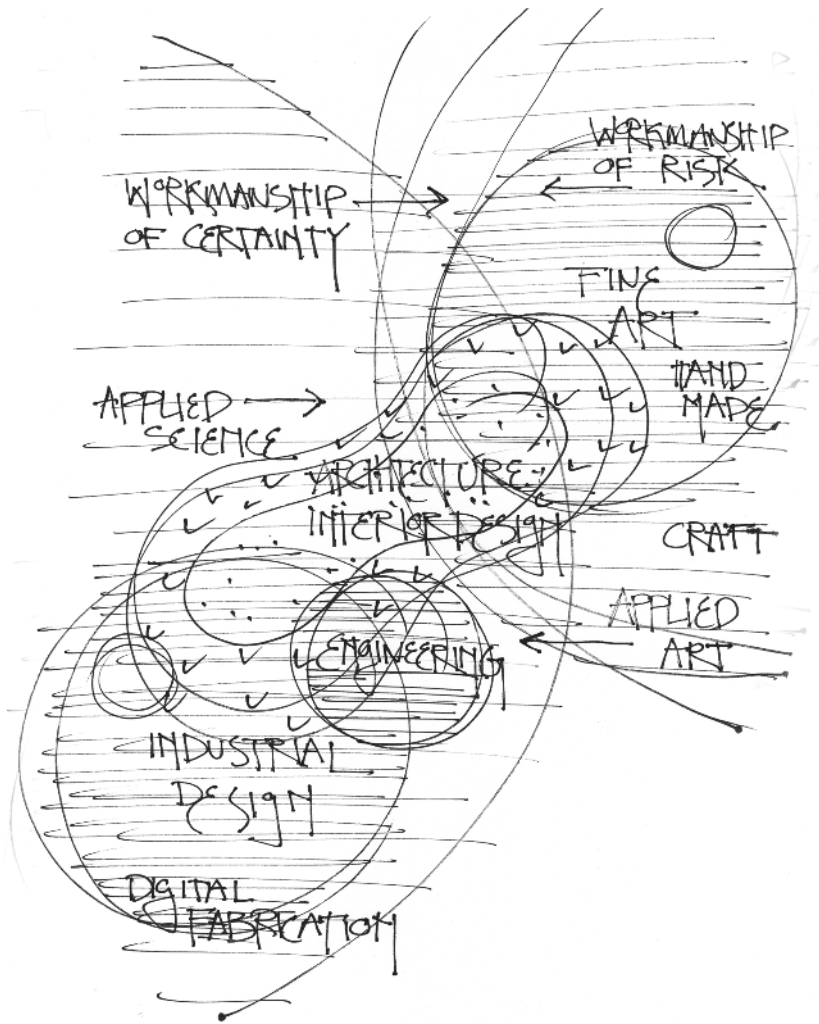 WORKMANSHIP
OF RISK
WORKMANSHIP
OF CERTAINTY
FINE
ART
HAND
MADE
APPLIED
SCIENCE
ARCHITECTURE
INTERIOR DESIGN
CRAFT
APPLIED
ART
ENGINEERING
INDUSTRIAL
DESIGN
DIGITAL
FABRICATION